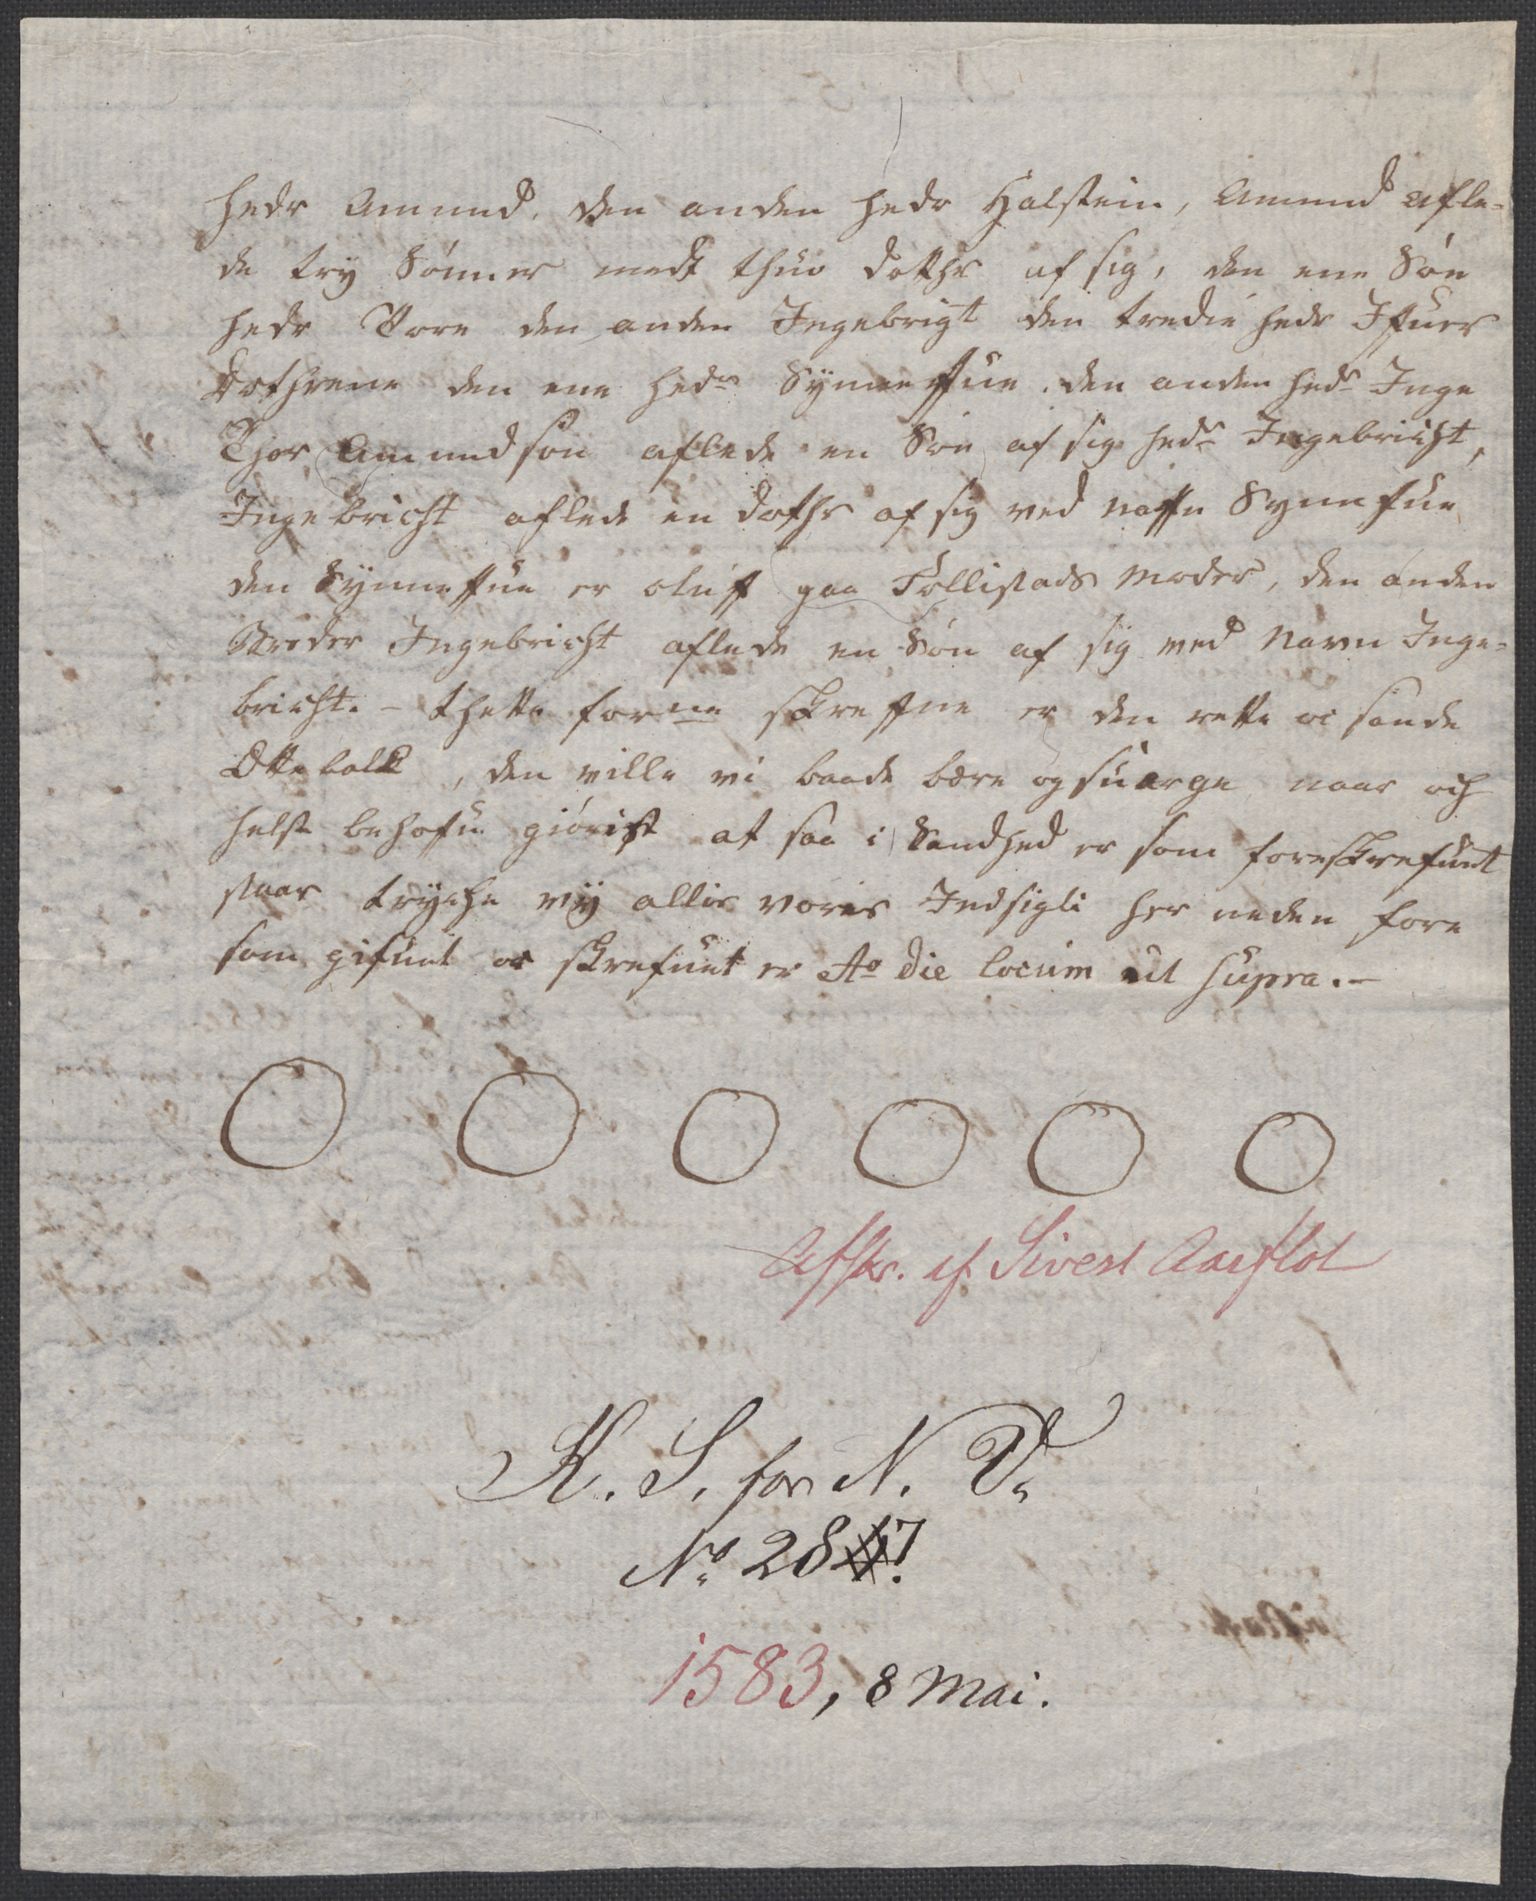 hedr Amund, den anden hedr Halstein, Amund afle-
de try Sønner medt thuo dotthr af sig, den ene Søn
hedr Tore den anden Ingebrigt den tredie hedr Iffuer
Dothrene den ene hedr Synneffue, den anden hedr Inge
Thor Amundsøn aflede en Søn af sig hedr Ingebricht,
Ingebricht aflede en dothr af sig ved naffn Synnfue
den Synneffue er oluff paa Follistads moder, den anden
Broder Ingebricht aflede en Søn af sig med Navn Inge-
bricht. - thette forne skreffne er den rette oc sande
Ottebolk, den ville vi baade bære og suærge naar och
helst behofu giørist at saa i Sandhed er som foreskrefuit
staar trÿche vÿ allis voris Indsigli her neden fore
som gifuit oc skrefuet er Ao die locum ut supra. -
Afskr. af Sivert Aarflot
K. S. for N. V.
No 2847!
1583, 8 Mai.